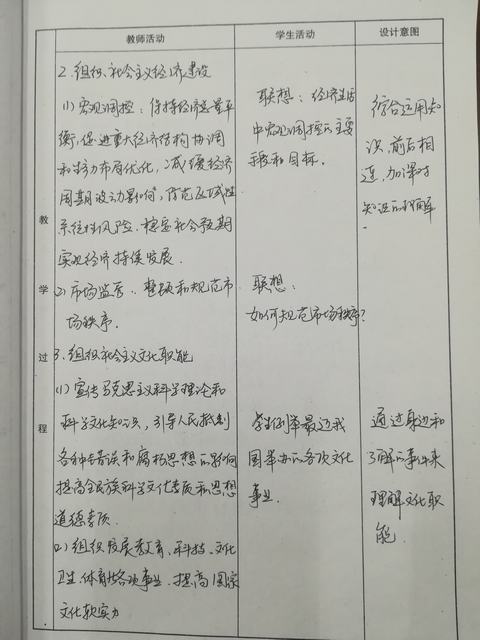 教师活动
学生活动
设计意图
教
学
过
程
2. 组织社会主义经济建设
(1) 宏观调控：保持经济总量平
衡，促进重大经济结构协调
和生产力布局优化，减缓经济
周期波动影响，防范区域性
系统性风险，稳定社会预期
实现经济持续发展.
(2) 市场监管：整顿和规范市
场秩序.
3. 组织社会主义文化职能
(1) 宣传马克思主义科学理论和
科学文化知识，引导人民抵制
各种错误和腐朽思想的影响
提高全民族科学文化素质和思想
道德素质.
(2) 组织发展教育、科技、文化
卫生、体育等各项事业，提高国家
文化软实力
联想：经济生活
中宏观调控的主要
手段和目标.
联想：
如何规范市场秩序？
学生列举最近我
国举办的各项文化
事业.
综合运用知
识，前后相
连，加深对
知识的理解.
通过身边和
了解的事件来
理解文化职
能.